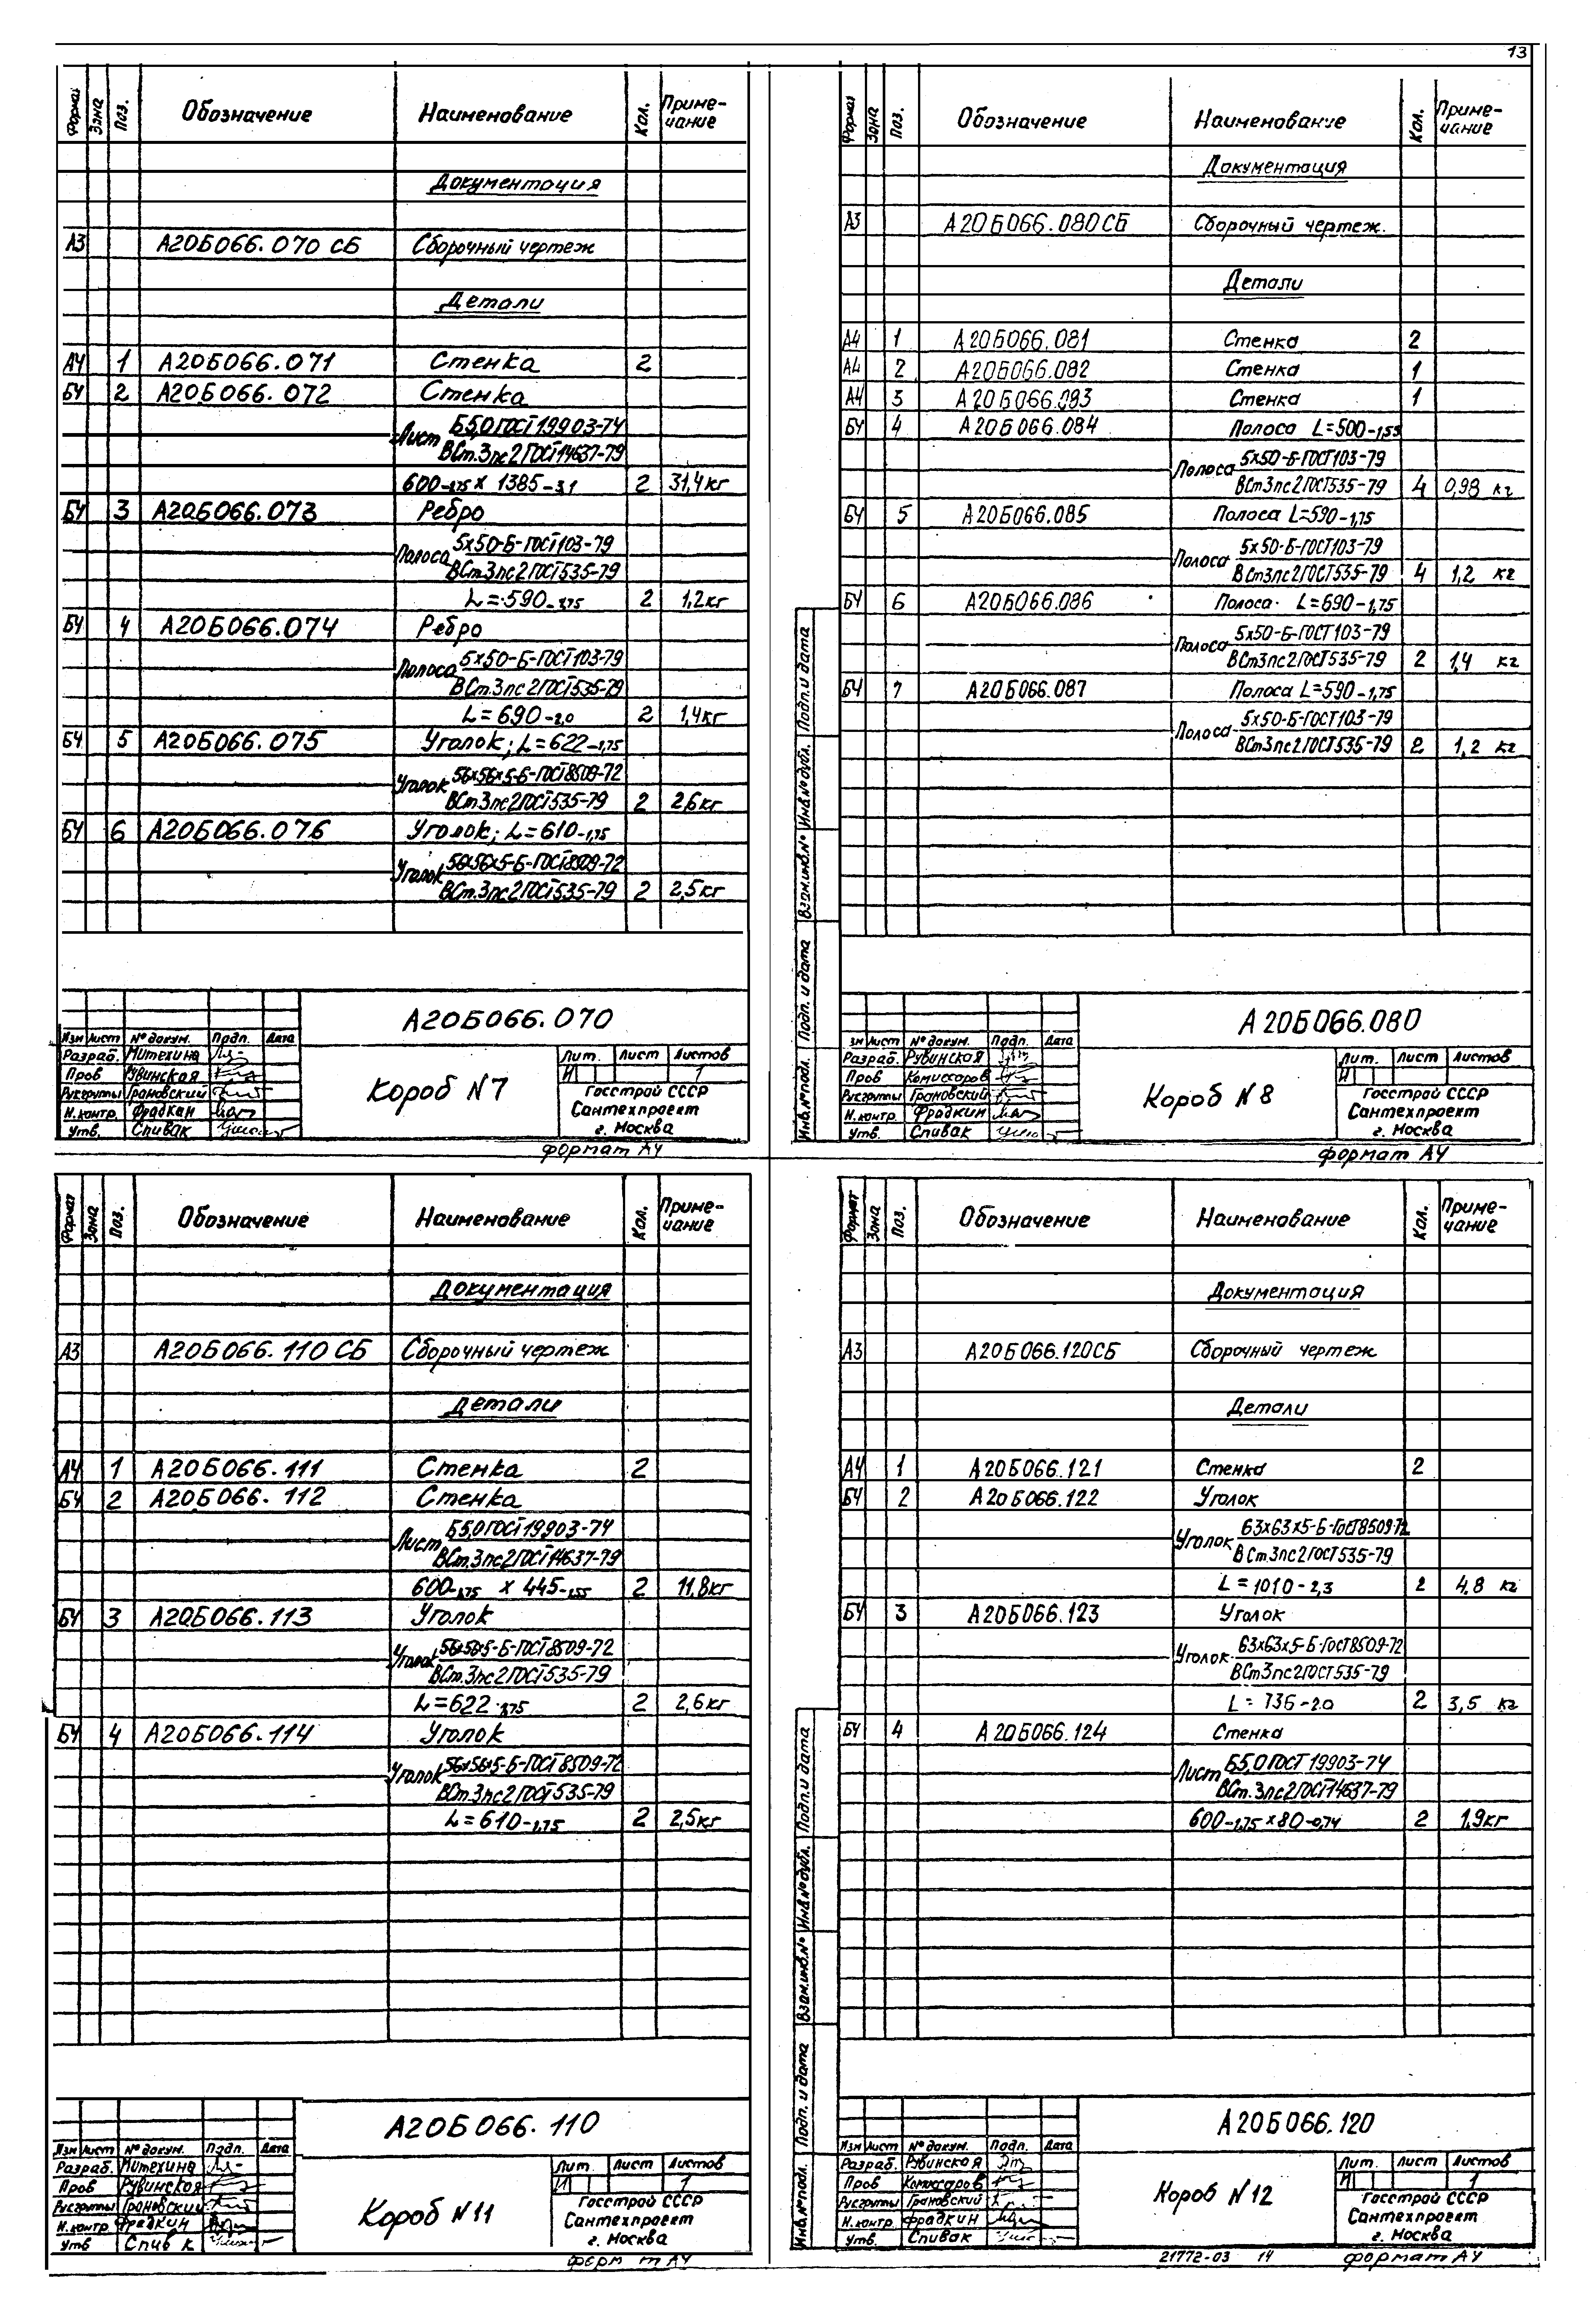 13
Формат Зона Поз. Обозначение Наименование Кол. Приме-чание
Документация
А3 А20Б066.070 СБ Сборочный чертеж
Детали
А4 1 А20Б066.071 Стенка 2
БЧ 2 А20Б066.072 Стенка
Лист Б5,0 ГОСТ 19903-74
ВСт.3пс2 ГОСТ 14637-79
600-1,75 х 1385-3,1 2 31,4кг
БЧ 3 А20Б066.073 Ребро
Полоса 5х50-Б-ГОСТ103-79
ВСт.3пс2 ГОСТ535-79
L=590-1,75 2 1,2кг
БЧ 4 А20Б066.074 Ребро
Полоса 5х50-Б-ГОСТ103-79
ВСт.3пс2 ГОСТ535-79
L=690-2,0 2 1,4кг
БЧ 5 А20Б066.075 Уголок; L=622-1,75
Уголок 56х56х5-Б-ГОСТ8509-72
ВСт.3пс2 ГОСТ535-79 2 2,6кг
БЧ 6 А20Б066.076 Уголок; L=610-1,75
Уголок 56х56х5-Б-ГОСТ8509-72
ВСт.3пс2 ГОСТ535-79 2 2,5кг
А20Б066.070
Изм Лист № докум. Подп. Дата
Разраб. Митехина
Пров Рувинская
Рук.группы Грановский
Н.контр. Фрадкин
Утв. Спивак
Короб N7
Лит. Лист Листов
И 1
Госстрой СССР
Сантехпроект
г. Москва
формат А4
Формат Зона Поз. Обозначение Наименование Кол. Приме-чание
Документация
А3 А20Б066.080СБ Сборочный чертеж.
Детали
А4 1 А20Б066.081 Стенка 2
А4 2 А20Б066.082 Стенка 1
А4 3 А20Б066.083 Стенка 1
БЧ 4 А20Б066.084 Полоса L=500-1,55
Полоса 5х50-Б-ГОСТ103-79
ВСт3пс2 ГОСТ535-79 4 0,98 кг
БЧ 5 А20Б066.085 Полоса L=590-1,75
Полоса 5х50-Б-ГОСТ103-79
ВСт3пс2 ГОСТ535-79 4 1,2 кг
БЧ 6 А20Б066.086 Полоса L=690-1,75
Полоса 5х50-Б-ГОСТ103-79
ВСт3пс2 ГОСТ535-79 2 1,4 кг
БЧ 7 А20Б066.087 Полоса L=590-1,75
Полоса 5х50-Б-ГОСТ103-79
ВСт3пс2 ГОСТ535-79 2 1,2 кг
Инв.№подл. Подп. и дата Взам.инв.№ Инв.№дубл. Подп.и дата
А20Б066.080
зм Лист № докум. Подп. Дата
Разраб. Рувинская
Пров Комиссаров
Рук.группы Грановский
Н.контр. Фрадкин
Утв. Спивак
Короб N8
Лит. Лист Листов
И
Госстрой СССР
Сантехпроект
г. Москва
формат А4
Формат Зона Поз. Обозначение Наименование Кол. Приме-чание
Документация
А3 А20Б066.110 СБ Сборочный чертеж
Детали
А4 1 А20Б066.111 Стенка 2
БЧ 2 А20Б066.112 Стенка
Лист Б5,0 ГОСТ 19903-74
ВСт.3пс2 ГОСТ 14637-79
600-1,75 х 445-1,55 2 11,8кг
БЧ 3 А20Б066.113 Уголок
Уголок 56х56х5-Б-ГОСТ8509-72
ВСт.3пс2 ГОСТ535-79
L=622-1,75 2 2,6кг
БЧ 4 А20Б066.114 Уголок
Уголок 56х56х5-Б-ГОСТ8509-72
ВСт.3пс2 ГОСТ535-79
L=610-1,75 2 2,5кг
А20Б066.110
Изм Лист № докум. Подп. Дата
Разраб. Митехина
Пров Рувинская
Рук.группы Грановский
Н.контр. Фрадкин
Утв Спив к
Короб N11
Лит. Лист Листов
И 1
Госстрой СССР
Сантехпроект
г. Москва
форм т А4
Формат Зона Поз. Обозначение Наименование Кол. Приме-чание
Документация
А3 А20Б066.120СБ Сборочный чертеж
Детали
А4 1 А20Б066.121 Стенка 2
БЧ 2 А20Б066.122 Уголок
Уголок 63х63х5-Б-ГОСТ8509-72
ВСт3пс2 ГОСТ535-79
L=1010-2,3 2 4,8 кг
БЧ 3 А20Б066.123 Уголок
Уголок 63х63х5-Б-ГОСТ8509-72
ВСт3пс2 ГОСТ535-79
L=736-2.0 2 3,5 кг
БЧ 4 А20Б066.124 Стенка
Лист Б5,0 ГОСТ 19903-74
ВСт.3пс2 ГОСТ14637-79
600-1,75 х 80-0,74 2 1,9кг
Инв.№подл. Подп. и дата Взам.инв.№ Инв.№дубл. Подп.и дата
А20Б066.120
Изм Лист № докум. Подп. Дата
Разраб. Рувинская
Пров Комиссаров
Рук.группы Грановский
Н.контр. Фрадкин
Утв. Спивак
Короб N12
Лит. Лист Листов
И 1
Госстрой СССР
Сантехпроект
г. Москва
21772-03 14 формат А4